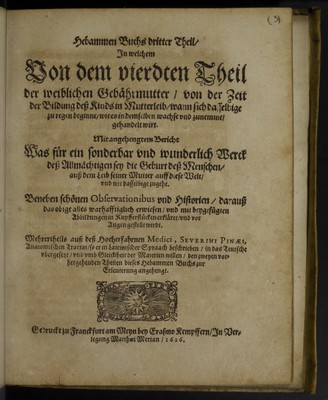 Hebammen Buchs dritter Theil/
In welchem
Von dem vierdten Theil
der weiblichen Gebährmutter / von der Zeit
der Bildung deß Kinds in Mutterleib/ wann sich dasselbige
zu regen beginne/ wie es in demselben wachse vnd zunemme/
gehandelt wirt.
Mit angehengtem Bericht
Was für ein sonderbar vnd wunderlich Werck
deß Allmächtigen sey die Geburt deß Menschen/
auß dem Leib seiner Mutter auff diese Welt/
vnd wie dasselbige zugehe.
Beneben schönen Observationibus vnd Historien / darauß
das obige alles warhafftiglich erwiesen / vnd mit beygefügten
Abbildungen in Kupfferstücken erkläret/ vnd vor
Augen gestellt werdt.
Mehrertheils auß deß Hocherfahrnen Medici, SEVERINI PINÆI,
Anatomischen Tractat/ so er in Lateinischer Spraach beschrieben / in das Teutsche
vbergesetzt / vnd vmb Gleichheit der Materien willen / den zweyen vor-
hergehenden Theilen dieses Hebammen Buchs zur
Erleuterung angehengt.
Getruckt zu Franckfurt am Meyn bey Erasmo Kempffern / In Ver-
legung Matthæi Merian / 1626.